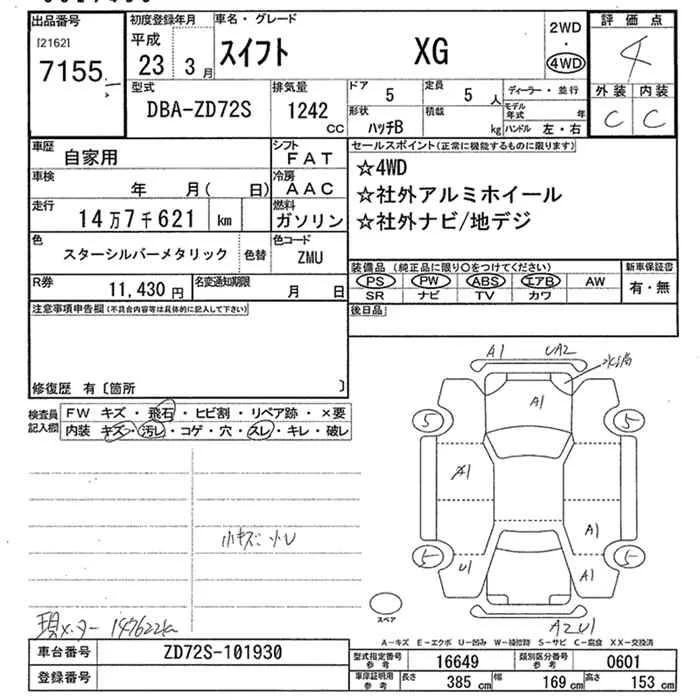 出品番号 初度登録年月 車名・グレード 2WD 評価点
[2162] 平成 スイフト XG ・ 4
7155 23 3月 4WD
型式 排気量 ドア 5 定員 5人 ディーラー・並行 外装 内装
DBA-ZD72S 1242 CC 形状 ハッチB 積載 kg モデル年式 年 C C
ハンドル 左・右
車歴 自家用 シフト FAT セールスポイント(正常に機能するものに限ります)
車検 年 月( 日) 冷房 AAC ☆4WD
走行 14万7千621 km 燃料 ガソリン ☆社外アルミホイール
☆社外ナビ/地デジ
色 スターシルバーメタリック 色替 色コード ZMU
装備品(純正品に限り○をつけてください) 新車保証書
R券 11,430円 名変通知期限 月 日 PS PW ABS エアB AW 有・無
SR ナビ TV カワ
注意事項申告欄(不具合内容等は具体的に記入して下さい) 後日品
修復歴 有〔箇所 〕
検査員記入欄 FW キズ・飛石・ヒビ割・リペア跡・×要
内装 キズ・汚レ・コゲ・穴・スレ・キレ・破レ
A1 UA2
A1
5 5
A1
A1
5 5
U1 A1
小キズ
スペア
A2U1
現メーター 147622km
A-キズ E-エクボ U-凹み W-補修跡 S-サビ C-腐食 XX-交換済
車台番号 ZD72S-101930 型式指定番号参考 16649 類別区分番号参考 0601
登録番号 車庫証明用参考 長さ 385cm 幅 169cm 高さ 153cm